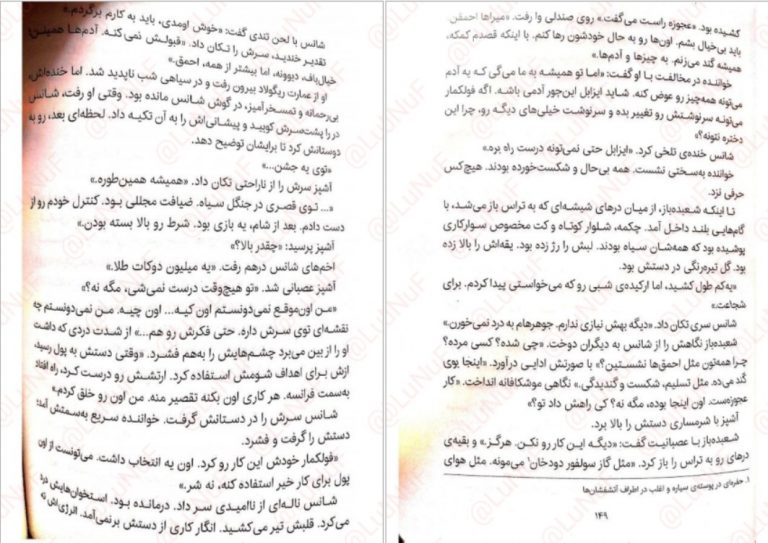 شانس با لحن تندی گفت: «خوش اومدی، باید به کارم برگردم.»
تقدیر خندید، سرش را تکان داد. «قبولش نمی‌کنه. آدم‌ها همینن!
خیال‌باف، دیوونه، اما بیشتر از همه، احمق.»
او از عمارت ریگولاد بیرون رفت و در سیاهی شب ناپدید شد. اما خنده‌اش،
بی‌رحمانه و تمسخرآمیز، در گوش شانس مانده بود. وقتی او رفت، شانس
در را پشت‌سرش کوبید و پیشانی‌اش را به آن تکیه داد. لحظه‌ای بعد، رو به
دوستانش کرد تا برایشان توضیح دهد.
«توی یه جشن...»
آشپز سرش را از ناراحتی تکان داد. «همیشه همین‌طوره.»
«... توی قصری در جنگل سیاه. ضیافت مجللی بود. کنترل خودم رو از
دست دادم. بعد از شام، یه بازی بود. شرط رو بالا بسته بودن.»
آشپز پرسید: «چقدر بالا؟»
اخم‌های شانس درهم رفت. «یه میلیون دوکات طلا.»
آشپز عصبانی شد. «تو هیچ‌وقت درست نمی‌شی، مگه نه؟»
«من اون‌موقع نمی‌دونستم اون کیه... اون چیه. من نمی‌دونستم چه
نقشه‌ای توی سرش داره. حتی فکرش رو هم...» از شدت دردی که داشت
او را از بین می‌برد چشم‌هایش را به‌هم فشرد. «وقتی دستش به پول رسید،
ازش برای اهداف شومش استفاده کرد. ارتشش رو درست کرد، راه افتاد
به‌سمت فرانسه. هر کاری اون بکنه تقصیر منه. من اون رو خلق کردم.»
شانس سرش را در دستانش گرفت. خواننده سریع به‌سمتش آمد؛
دستش را گرفت و فشرد.
«فولکمار خودش این کار رو کرد. اون یه انتخاب داشت. می‌تونست از اون
پول برای کار خیر استفاده کنه، نه شر.»
شانس ناله‌ای از ناامیدی سر داد. درمانده بود. استخوان‌هایش درد
می‌کرد. قلبش تیر می‌کشید. انگار کاری از دستش برنمی‌آمد. انرژی‌اش ته
کشیده بود. «عجوزه راست می‌گفت.» روی صندلی وا رفت. «میراها احمقن.
باید بی‌خیال بشم. اون‌ها رو به حال خودشون رها کنم. با اینکه قصدم کمکه،
همیشه گند می‌زنم. به چیزها و آدم‌ها.»
خواننده در مخالفت با او گفت: «اما تو همیشه به ما می‌گی که یه آدم
می‌تونه همه‌چیز رو عوض کنه. شاید ایزابل این‌جور آدمی باشه. اگه فولکمار
می‌تونه سرنوشتش رو تغییر بده و سرنوشت خیلی‌های دیگه رو، چرا این
دختره نتونه؟»
شانس خنده‌ی تلخی کرد. «ایزابل حتی نمی‌تونه درست راه بره.»
خواننده به‌سختی نشست. همه بی‌حال و شکست‌خورده بودند. هیچ‌کس
حرفی نزد.
تا اینکه شعبده‌باز، از میان درهای شیشه‌ای که به تراس باز می‌شد، با
گام‌هایی بلند داخل آمد. چکمه، شلوار کوتاه و کت مخصوص سوارکاری
پوشیده بود که همه‌شان سیاه بودند. لبش را رژ زده بود. یقه‌اش را بالا زده
بود. گل تیره‌رنگی در دستش بود.
«یه‌کم طول کشید، اما ارکیده‌ی شبی رو که می‌خواستی پیدا کردم. برای
شجاعت.»
شانس سری تکان داد. «دیگه بهش نیازی ندارم. جوهرهام به درد نمی‌خورن.»
شعبده‌باز نگاهش را از شانس به دیگران دوخت. «چی شده؟ کسی مرده؟
چرا همه‌تون مثل احمق‌ها نشستین؟» با صورتش ادایی درآورد. «اینجا بوی
گند می‌ده. مثل تسلیم، شکست و گندیدگی.» نگاهی موشکافانه انداخت. «کار
عجوزه‌ست. اون اینجا بوده، مگه نه؟ کی راهش داد تو؟»
آشپز با شرمساری دستش را بالا برد.
شعبده‌باز با عصبانیت گفت: «دیگه این کار رو نکن. هرگز.» و بقیه‌ی
درهای رو به تراس را باز کرد. «مثل گاز سولفور دودخان¹ می‌مونه. مثل هوای
۱. حفره‌ای در پوسته‌ی سیاره و اغلب در اطراف آتشفشان‌ها
۱۴۹
@LuNuF